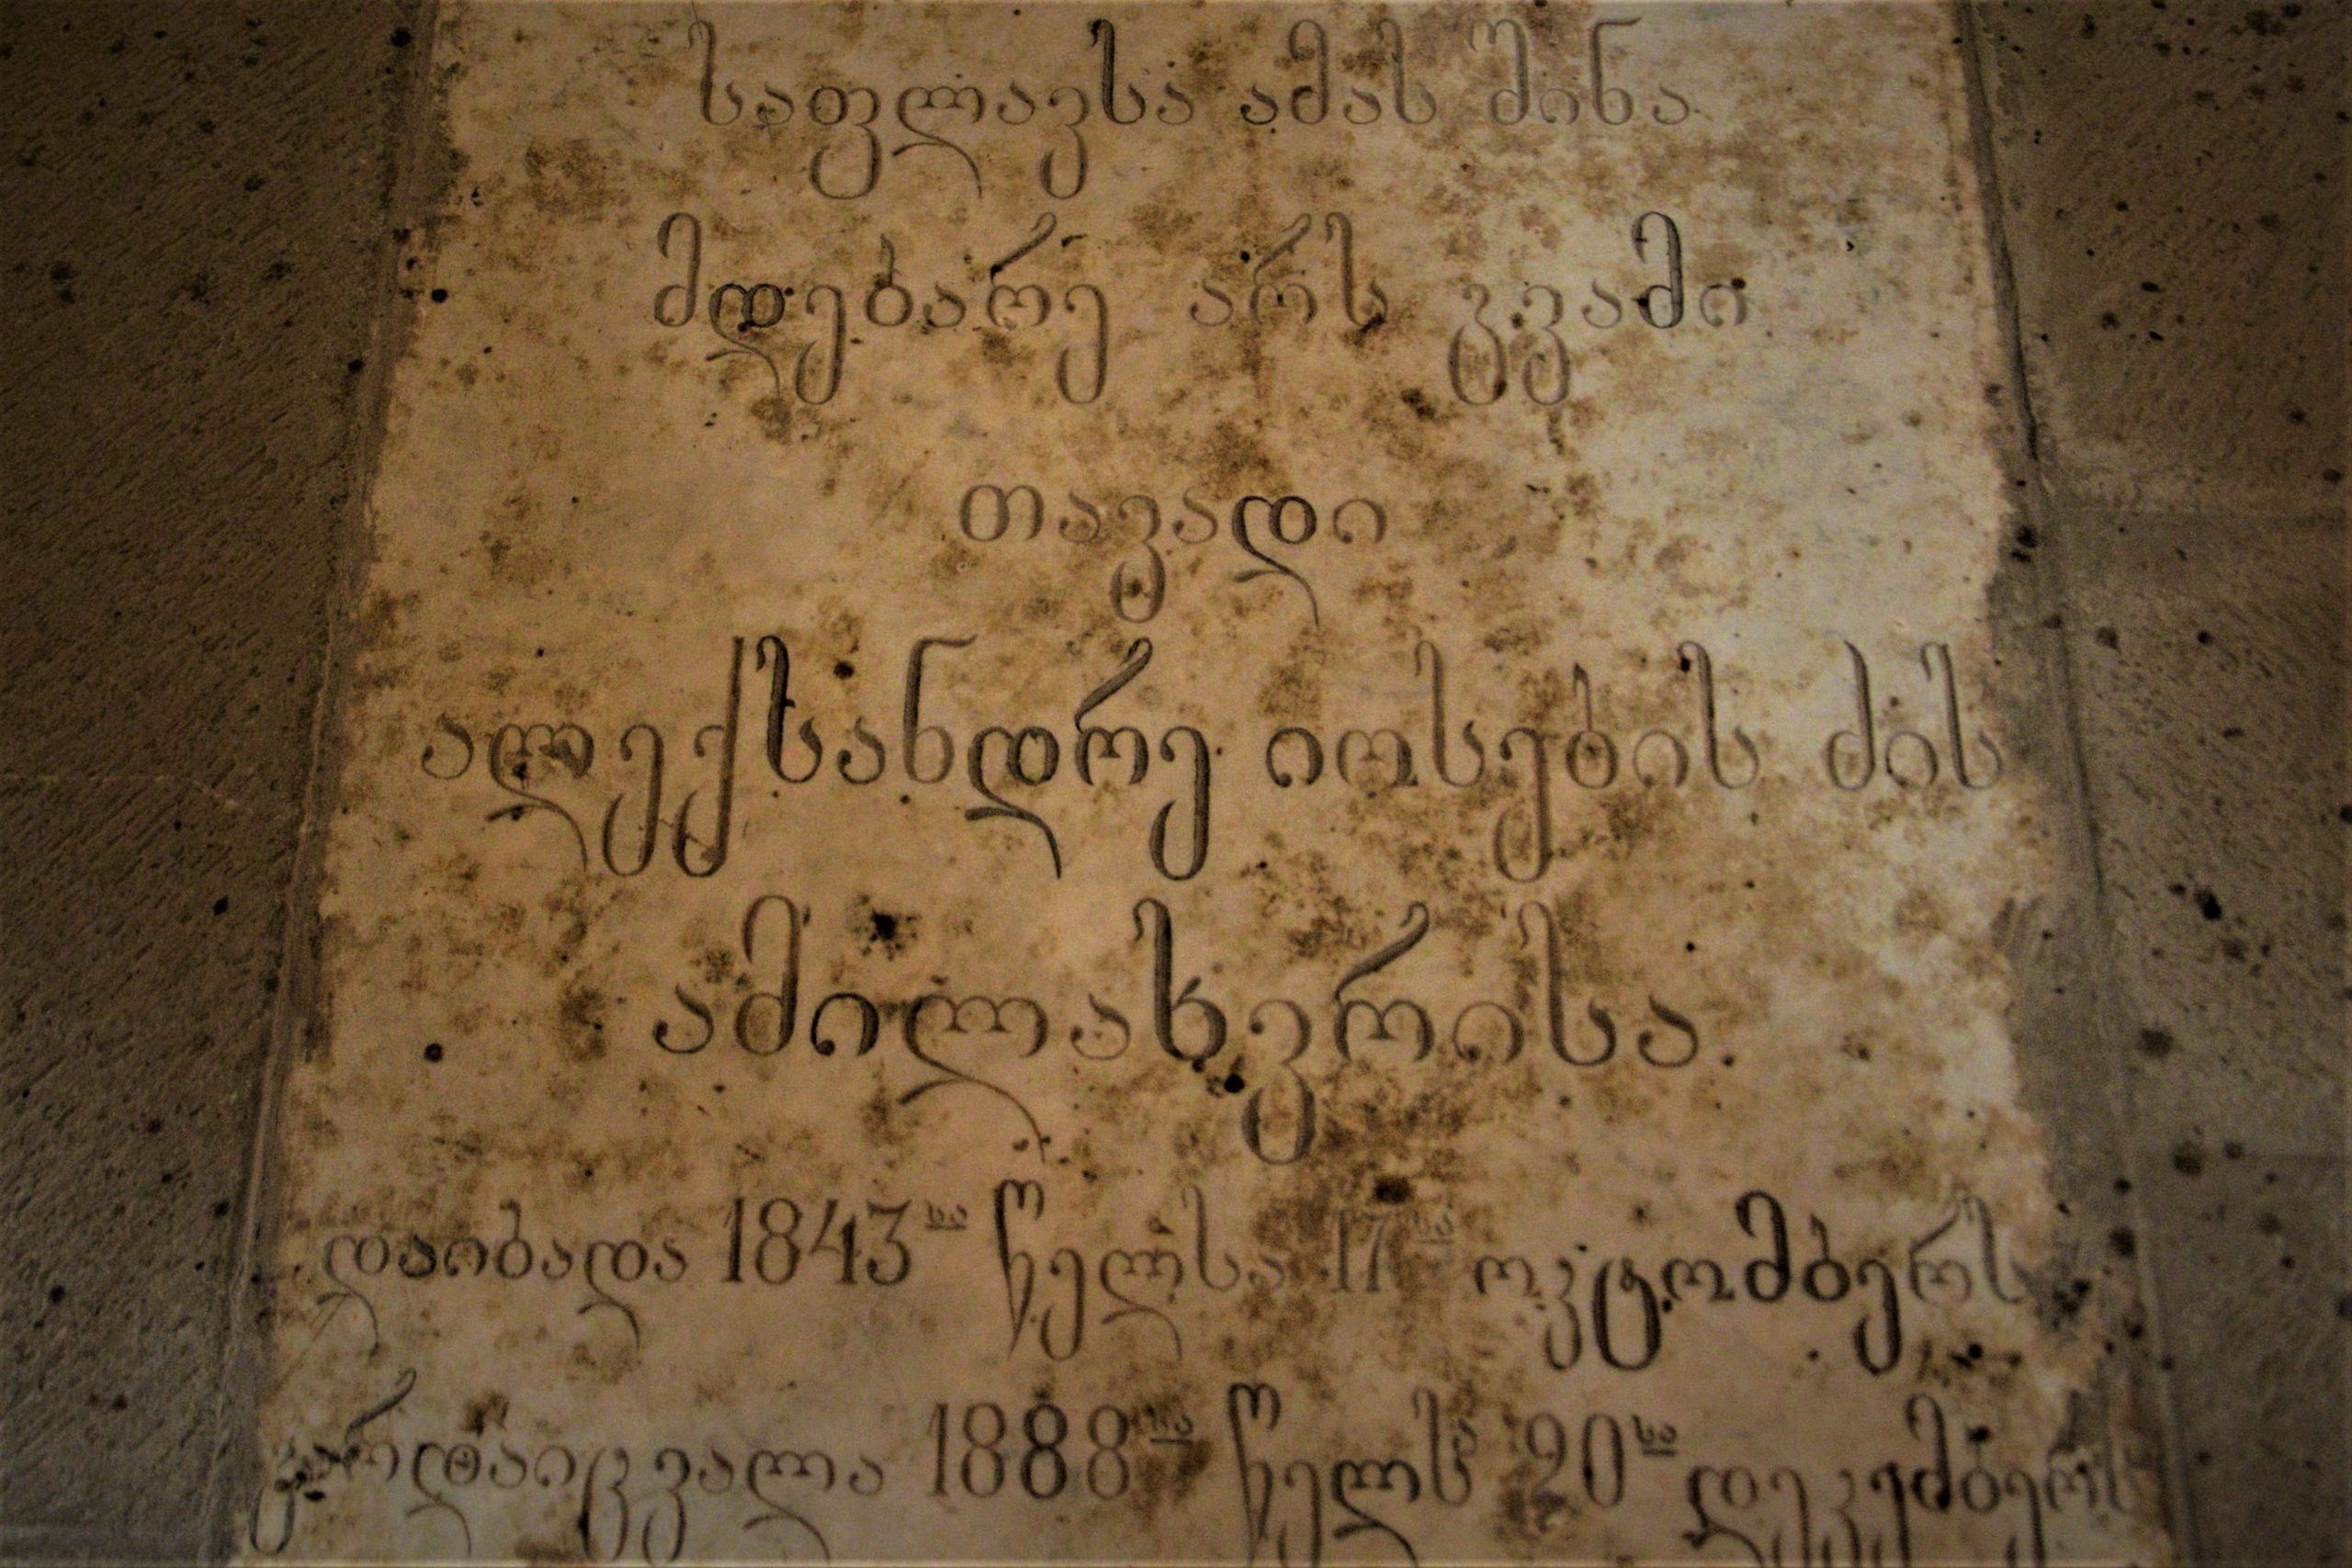 საფლავსა ამას შინა
მდებარე არს გვამი
თავადი
ალექსანდრე იოსების ძის
ამილახვრისა.
დაიბადა 1843სა წელსა 17სა ოკტომბერს
გარდაიცვალა 1888სა წელს 20სა დეკემბერს